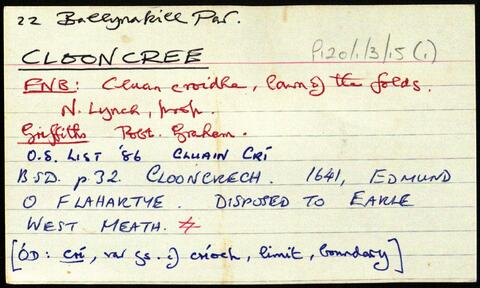 22 Ballynakill Par.
P120/1/3/15 (1)
CLOONCREE
FNB: Cluan croidhe, lawn of the folds.
N. Lynch, prop.
Griffiths Robt. Graham.
O.S. LIST '86 CLUAIN CRÍ
B.S.D. p.32. CLOONCRECH. 1641, EDMUND
O FLAHARTYE. DISPOSED TO EARLE
WEST MEATH.
[ÓD: crí, var gs. of críoch, limit, boundary]